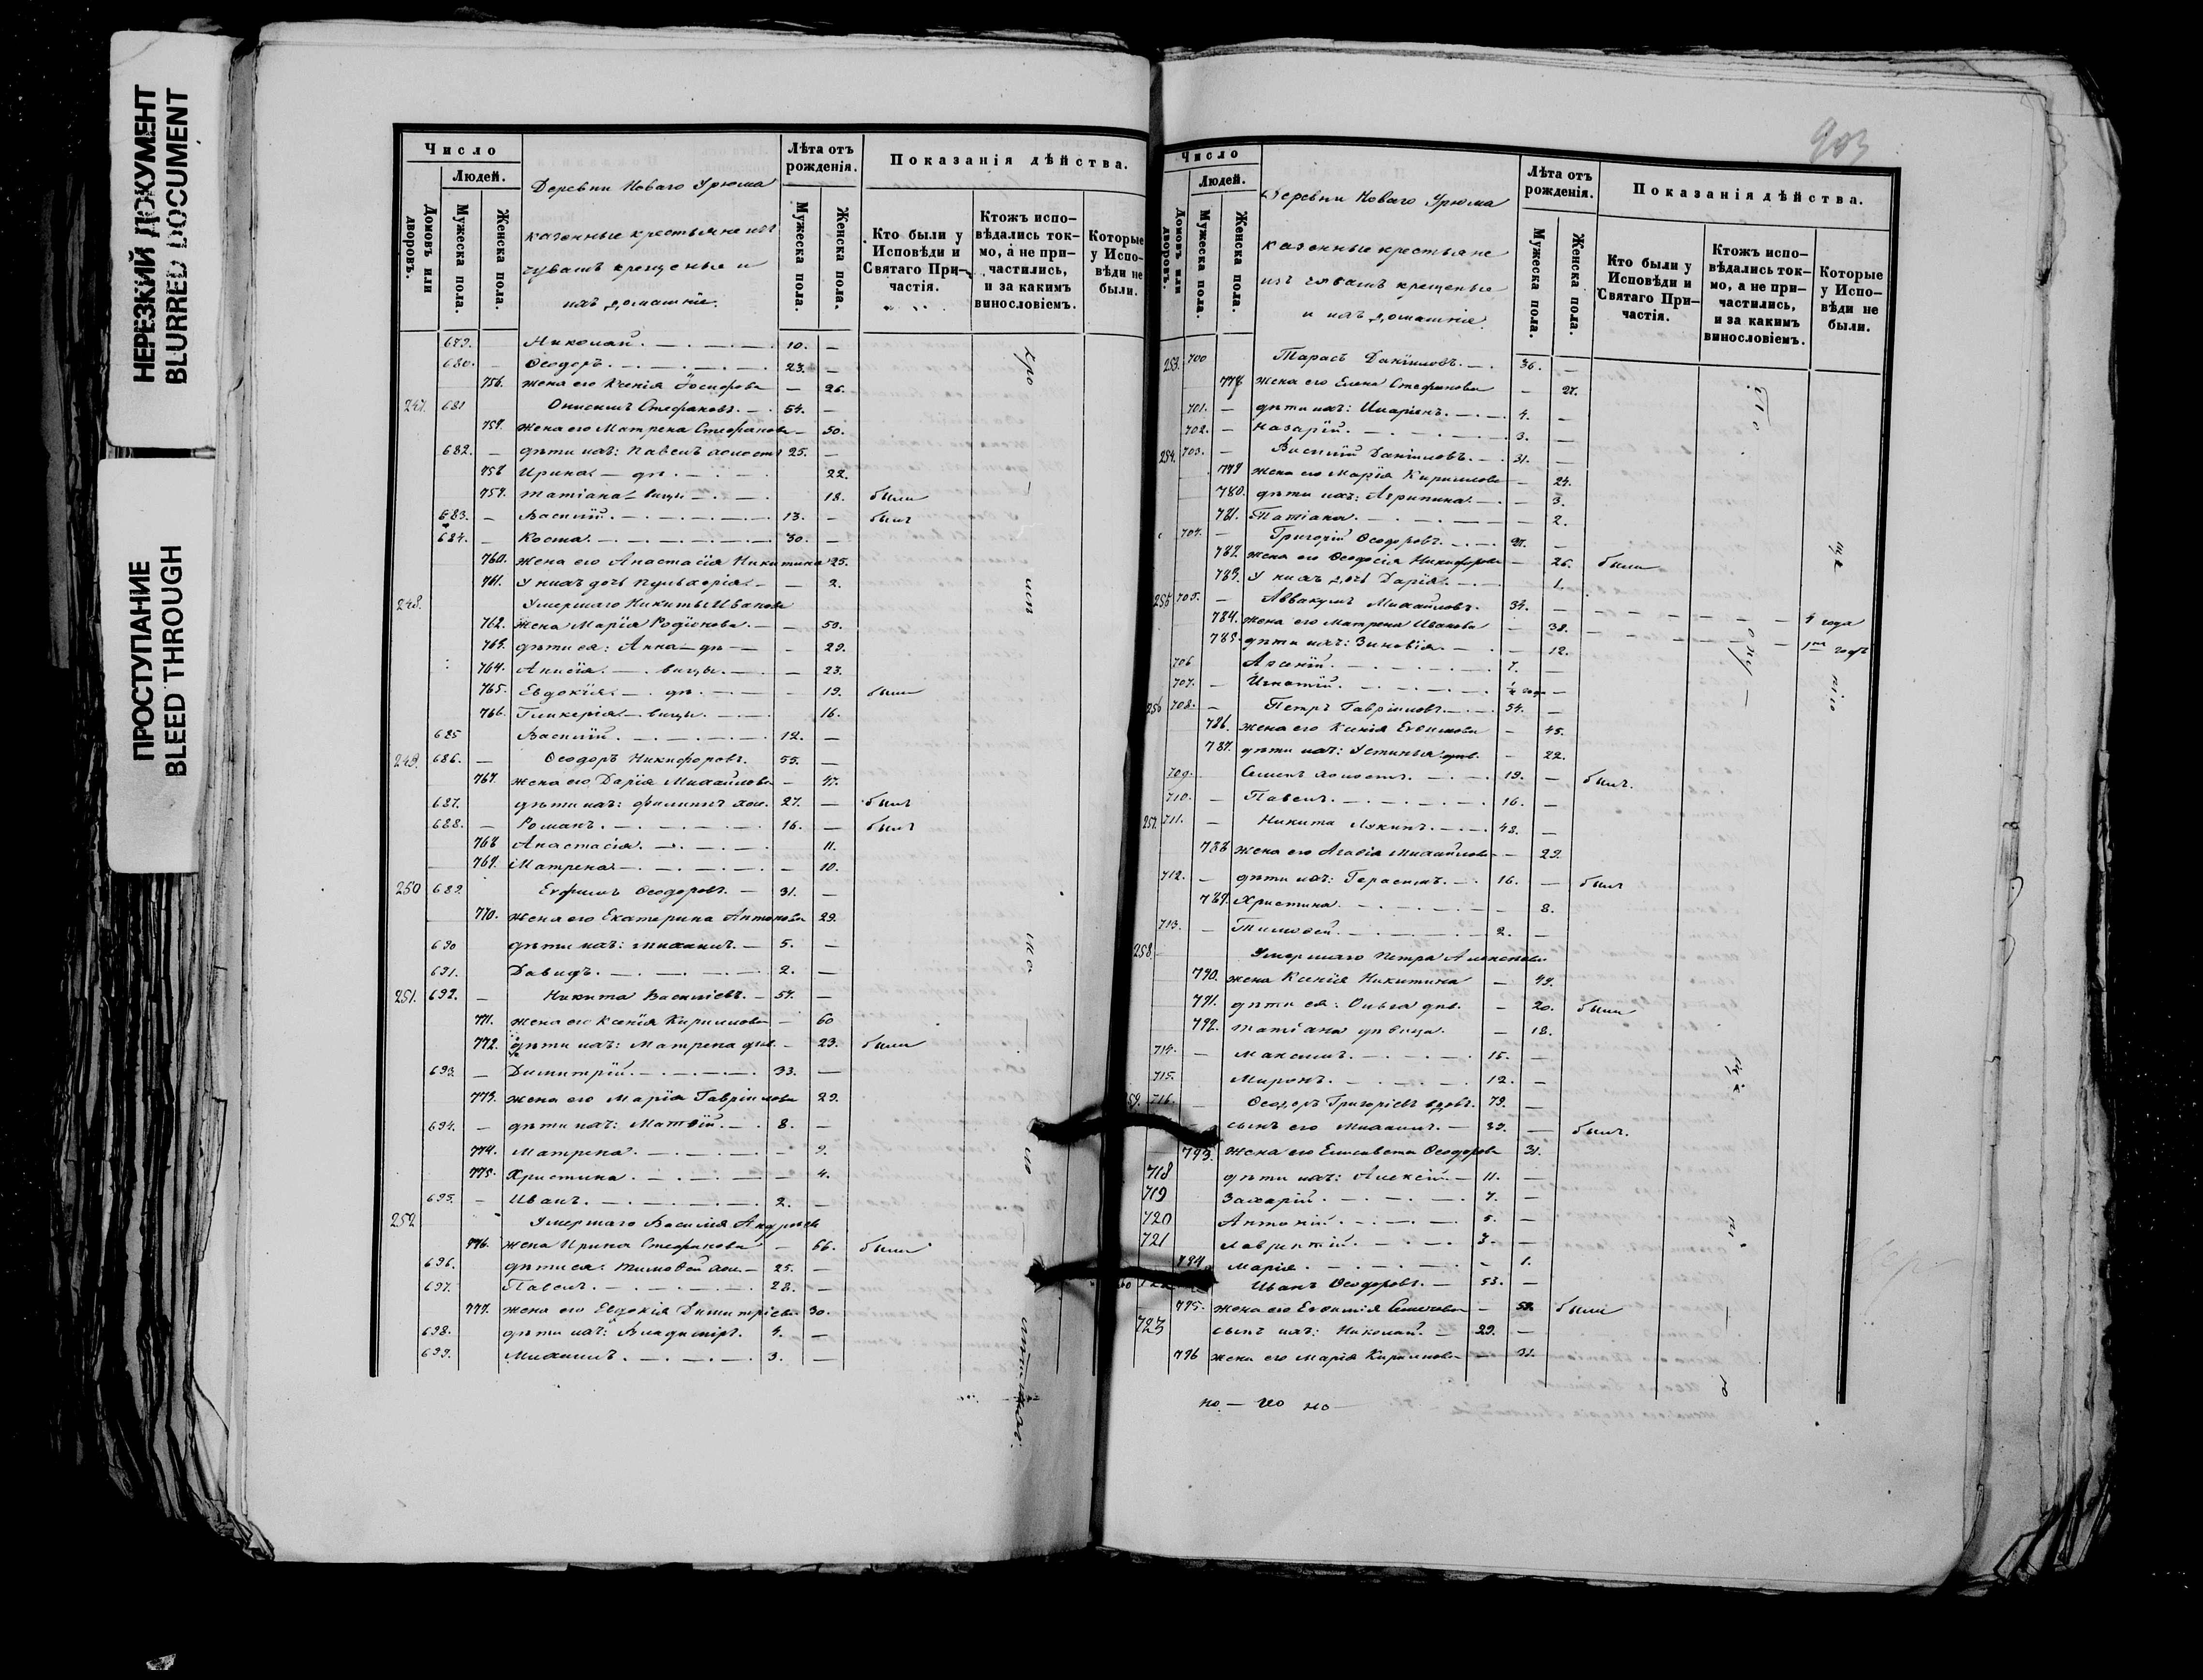 НЕРЕЗКИЙ ДОКУМЕНТ
BLURRED DOCUMENT
ПРОСТУПАНИЕ
BLEED THROUGH
Число
Людей.
Домовъ или дворовъ.
Мужеска пола.
Женска пола.
Деревни Новаго Урюма
казенные крестьяне изъ
чувашъ крещеные и
ихъ домашніе.
Лѣта отъ рожденія.
Мужеска пола.
Женска пола.
Показанія дѣйства.
Кто были у Исповѣди и Святаго Причастія.
Ктожъ исповѣдались токмо, а не причастились, и за какимъ винословіемъ.
Которые у Исповѣди не были.
679. Николай. 10. —
680. — Ѳеодоръ. 23. —
756. жена его Ксенія Іосифова — 26.
247. 681 Онисимъ Стефановъ. 54. —
757. жена его Матрена Стефанова — 50.
682. — дѣти ихъ: Павелъ холостъ 25. —
758 Ирина — дѣ 22.
759. Татіана — вицы 18. были
683. — Василій. 13. — былъ
684. — Косма. 30. —
760. жена его Анастасія Никитина 25.
761. У нихъ дочь Пульхерія — 2.
248. Умершаго Никиты Иванова
762. жена Марія Родіонова. — 50.
763. дѣти ея: Анна — дѣ — 29.
764. Анисія. — вицы. — 23.
765. Евдокія. — дѣ. — 19. были
766. Гликерія — вицы. 16.
685 Василій. 12. —
249. 686. — Ѳеодоръ Никифоровъ. 55. —
767. жена его Дарія Михайлова — 47.
687. дѣти ихъ: Филиппъ хол. 27. — былъ
688. — Романъ. 16. — былъ
768 Анастасія. 11.
769. Матрена — 10.
250 689 Евфимъ Ѳеодоровъ. — 31. —
770. жена его Екатерина Антонова 29.
690 дѣти ихъ: Михаилъ. — 5. —
691. Давидъ. 2. —
251. 692. — Никита Васильевъ. — 57. —
771. жена его Ксенія Кириллова — 60
772. дѣти ихъ: Матрена дѣв. — 23. были
693. — Димитрій. 33. —
773. жена его Марія Гавріилова 29.
694. — дѣти ихъ: Матѳій. 8. —
774. Матрена. — 9.
775. Христина. — 4.
695. — Иванъ. 2. —
252 Умершаго Василія Андреева
776. жена Ирина Стефанова — 66. были
696. дѣти ея: Тимоѳей хол. — 25. —
697. Павелъ. 28. —
777. жена его Евдокія Димитріева 30.
698. дѣти ихъ: Владиміръ. 4. —
699. Михаилъ. 3. —
903
Число
Людей.
Домовъ или дворовъ.
Мужеска пола.
Женска пола.
Деревни Новаго Урюма
казенные крестьяне
изъ чувашъ крещеные
и ихъ домашніе.
Лѣта отъ рожденія.
Мужеска пола.
Женска пола.
Показанія дѣйства.
Кто были у Исповѣди и Святаго Причастія.
Ктожъ исповѣдались токмо, а не причастились, и за какимъ винословіемъ.
Которые у Исповѣди не были.
253. 700 Тарасъ Даніиловъ. 36. —
778 жена его Елена Стефанова — 27.
701. — дѣти ихъ: Иларіонъ. 4. —
702. — Назарій. 3. —
254. 703. — Василій Даніиловъ. 31. —
779 жена его Марія Кириллова — 24.
780. дѣти ихъ: Агрипина. — 3.
781. Татіана. — 2.
704. — Григорій Ѳеодоровъ. 27. —
782. жена его Ѳеодосія Никифорова — 26. были
783. У нихъ дочь Дарія. 1.
255 705. — Аввакумъ Михайловъ. 34. — 4 года
784. жена его Матрена Иванова — 38. 1 годъ
785 дѣти ихъ: Зиновія. — 12.
706 Арсеній. 7. —
707. — Игнатій. —
256 708. — Петръ Гавріиловъ. 54. —
786. жена его Ксенія Евѳимова — 45.
787. дѣти ихъ: Устинья дѣв. — 22.
709. Семенъ холостъ. 19. — былъ.
710. — Павелъ. 16. —
257. 711. — Никита Лукинъ. 48. —
788 жена его Агаѳія Михайлова — 29.
712. — дѣти ихъ: Герасимъ. 16. — былъ
789. Христина. — 8.
713. — Тимоѳей. 2. —
258 Умершаго Петра Алексѣева
790. жена Ксенія Никитина — 49.
791. дѣти ея: Ольга дѣв. — 20. были
792. Татіана дѣвица. — 18.
714. — Максимъ. 15. —
715. Миронъ. 12. —
59. 716. — Ѳеодоръ Григорьевъ вдовъ. 79. —
сынъ его Михаилъ. — 39. — былъ.
793. жена его Елисавета Ѳеодорова 31.
718 дѣти ихъ: Алексѣй. — 11. —
719 Захарій. 7. —
720 Антоній. 5. —
721 Лаврентій. 3. —
794 Марія. — 1.
Иванъ Ѳеодоровъ. — 53. —
795. жена его Евѳимія Семенова — 58. были
723 сынъ ихъ: Николай. — 29. —
796 жена его Марія Кириллова — 31.
но — но но